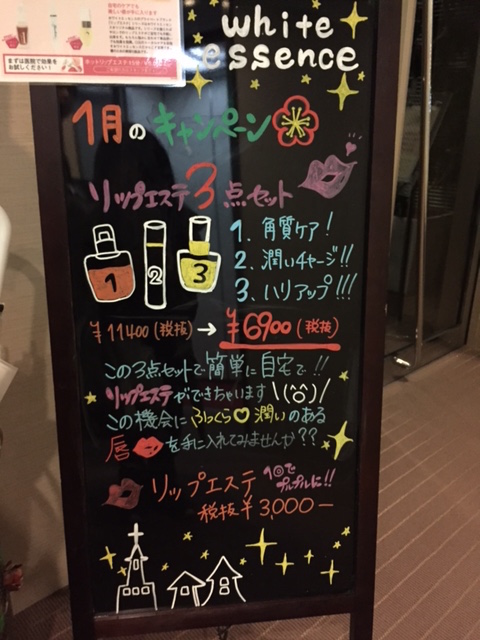 white
essence
1月のキャンペーン
リップエステ3点セット
1
2
3
1. 角質ケア!
2. 潤いチャージ!!
3. ハリアップ!!!
¥11400(税抜)→¥6900(税抜)
この3点セットで簡単に自宅で!!
リップエステができちゃいます\(^o^)/
この機会にふっくら♡潤いのある
唇を手に入れてみませんか??
リップエステ 1回でプルプルに!!
税抜¥3,000−
まずは医院で効果をお試しください!